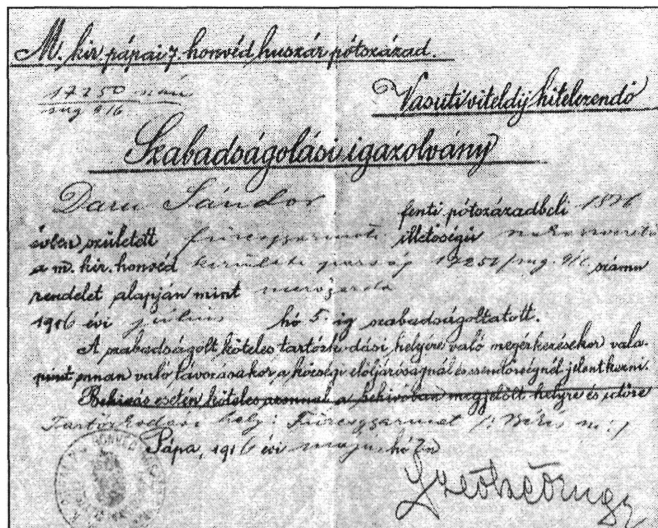 M. kir. pápai 7. honvéd huszár pótszázad.
17250 szám
aug 916
Vasuti viteldíj hitelezendő
Szabadságolási igazolvány
Daru Sándor fenti pótszázadbeli 1876
évben született füzesgyarmati illetőségű
a m. kir. honvéd kerületi parság 17251/ számu
rendelet alapján mint
1916 évi julius hó 5. ig szabadságoltatott.
A szabadságolt köteles tartózkodási helyére való megérkezésekor vala-
mint onnan való távozásakor a községi elöljáróságnál és csendőrségnél jelentkezni.
Behivás esetén köteles azonnal a behívóban megjelölt helyre és időre
Tartózkodási hely: Füzesgyarmat Békés m/
Pápa, 1916 évi május hó 7 n